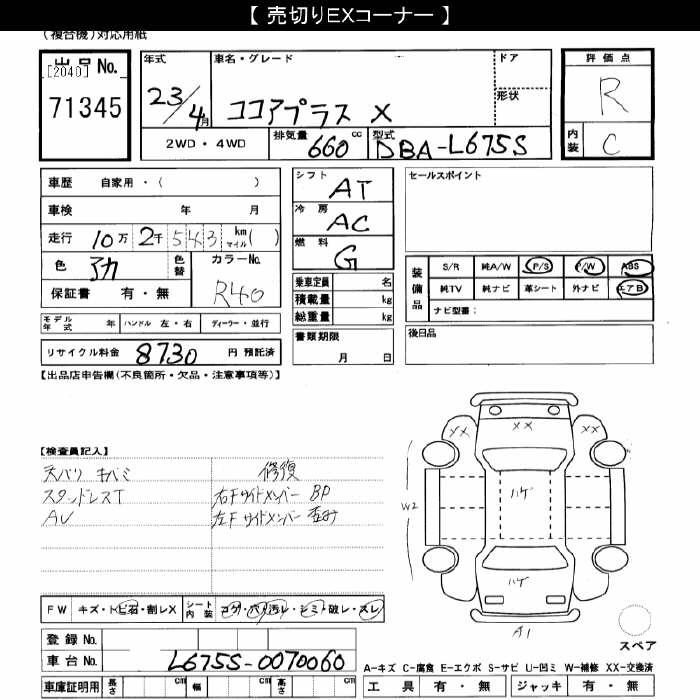 【 売切りEXコーナー 】
(複合機)対応用紙
出品No.
[2040]
71345
年式
23/4月
車名・グレード
ココアプラス X
ドア
形状
2WD・4WD
排気量 660 cc
型式 DBA-L675S
評価点
R
内装 C
車歴 自家用・( )
車検 年 月
走行 10万 2千 543 km マイル( )
色
色替
カラーNo.
R40
保証書 有・無
シフト AT
冷房 AC
燃料 G
乗車定員 名
積載量 kg
総重量 kg
セールスポイント
装備品
S/R 純A/W P/S P/W ABS
純TV 純ナビ 革シート 外ナビ エアB
ナビ型番:
モデル年式 年 ハンドル 左・右 ディーラー・並行
リサイクル料金 8730 円 預託済
書類期限
月 日
後日品
【出品店申告欄(不良箇所・欠品・注意事項等)】
【検査員記入】
天バリ キバミ
スタンドレスT
AU
修復
右Fサイドメンバー BP
左Fサイドメンバー 歪み
XX
XX
XX
W2
ハゲ
ハゲ
A1
スペア
FW キズ・トビ石・割レX
シート内装 コゲ・穴・汚レ・シミ・破レ・スレ
登録No.
車台No. L675S-0070060
車庫証明用 長さ cm 幅 cm 高さ cm
A-キズ C-腐食 E-エクボ S-サビ U-凹ミ W-補修 XX-交換済
工具 有・無 ジャッキ 有・無